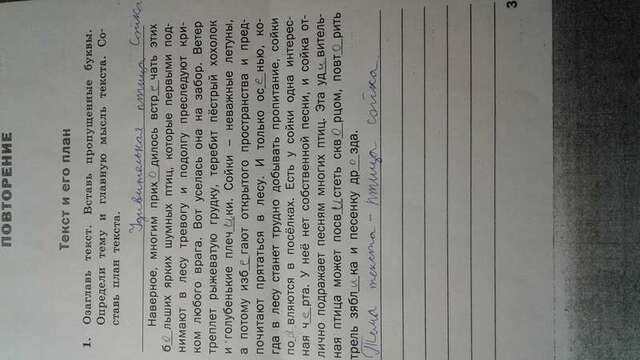 ПОВТОРЕНИЕ
Текст и его план
1. Озаглавь текст. Вставь пропущенные буквы.
Определи тему и главную мысль текста. Со-
ставь план текста.
Удивительная птица сойка
Наверное, многим приходилось встречать этих
больших ярких шумных птиц, которые первыми под-
нимают в лесу тревогу и подолгу преследуют кри-
ком любого врага. Вот уселась она на забор. Ветер
треплет рыжеватую грудку, теребит пёстрый хохолок
и голубенькие плечики. Сойки – неважные летуны,
а потому избегают открытого пространства и пред-
почитают прятаться в лесу. И только осенью, ко-
гда в лесу станет трудно добывать пропитание, сойки
появляются в посёлках. Есть у сойки одна интерес-
ная черта. У неё нет собственной песни, и сойка от-
лично подражает песням многих птиц. Эта удивитель-
ная птица может посвистеть скворцом, повторить
трель зяблика и песенку дрозда.
Тема текста – птица сойка
3